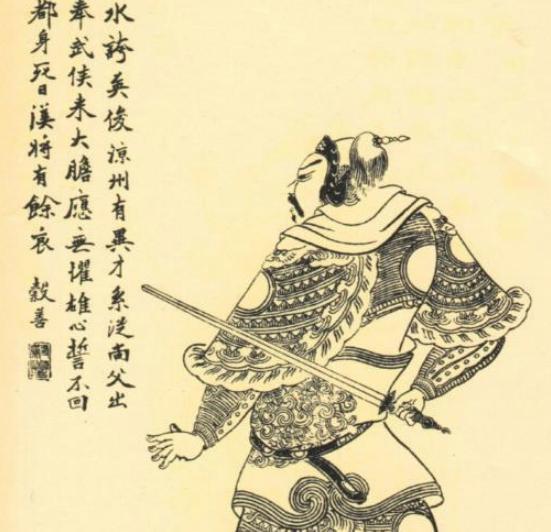 水誇英俊涼州有異才系從尚父出
奉武侯来大膽應無懼雄心誓不回
都身死日漢將有餘哀 穀善